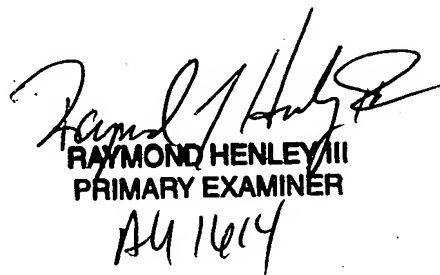 Raymond J Henley III
RAYMOND HENLEY III
PRIMARY EXAMINER
AU 1614